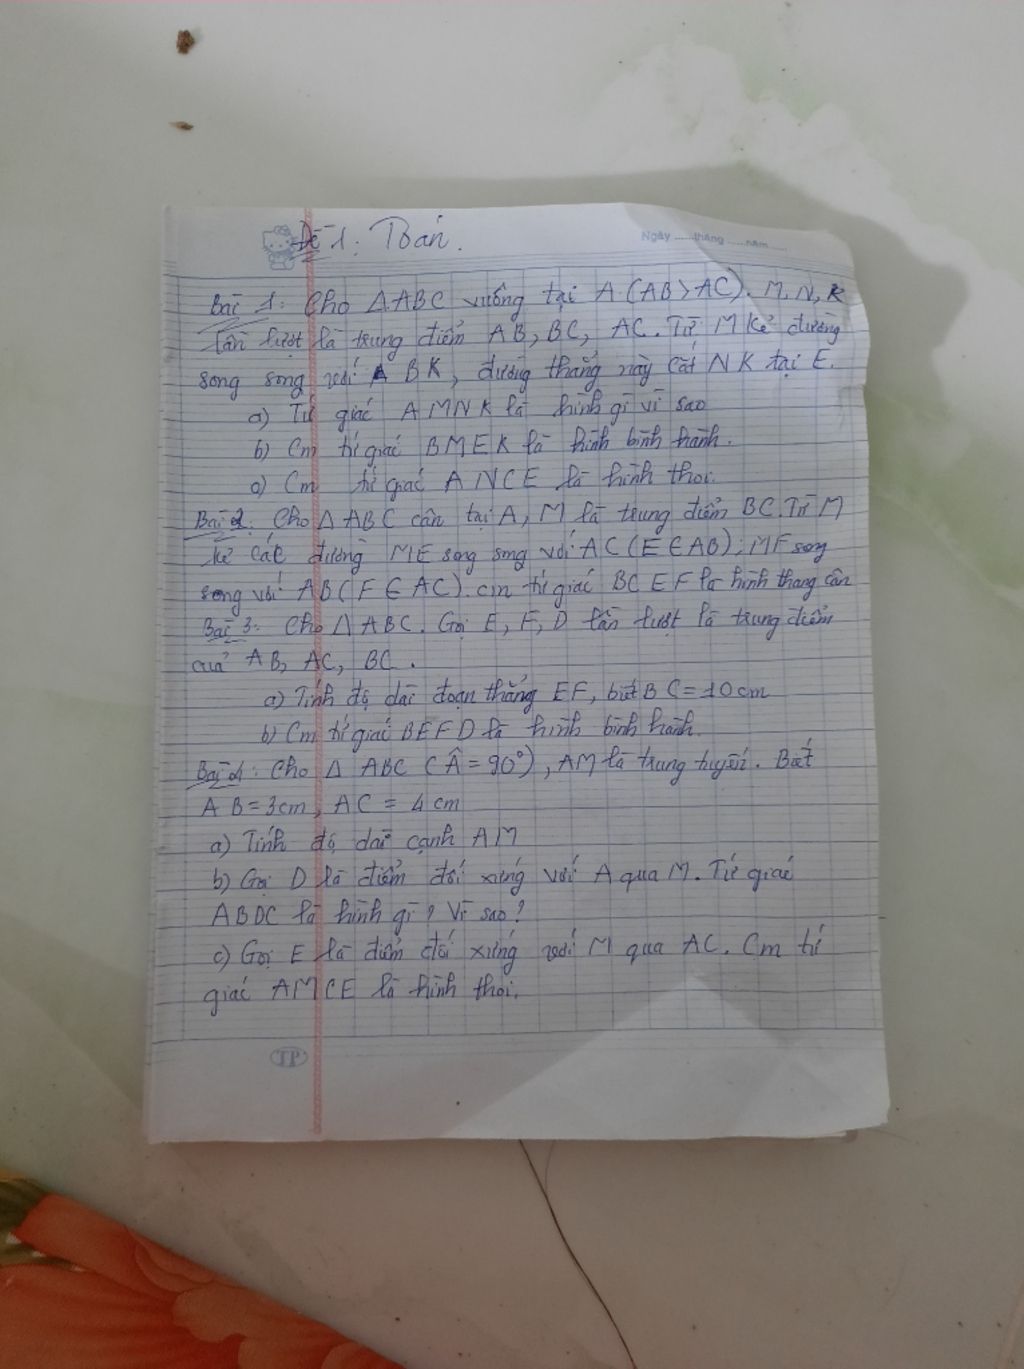 Đề 1: Toán.
Ngày ......tháng ......năm ......
Bài 1: Cho ΔABC vuông tại A (AB > AC). M, N, K
lần lượt là trung điểm AB, BC, AC. Từ M kẻ đường
song song với BK, đường thẳng này cắt NK tại E.
a) Tứ giác AMNK là hình gì vì sao
b) Cm tứ giác BMEK là hình bình hành.
c) Cm tứ giác ANCE là hình thoi.
Bài 2: Cho Δ ABC cân tại A, M là trung điểm BC. Từ M
kẻ các đường ME song song với AC (E ∈ AB); MF song
song với AB (F ∈ AC). cm tứ giác BCEF là hình thang cân
Bài 3: Cho Δ ABC. Gọi E, F, D lần lượt là trung điểm
của AB, AC, BC.
a) Tính độ dài đoạn thẳng EF, biết BC = 10cm
b) Cm tứ giác BEFD là hình bình hành.
Bài 4: Cho Δ ABC (Â = 90°), AM là trung tuyến. Biết
AB = 3cm, AC = 4cm
a) Tính độ dài cạnh AM
b) Gọi D là điểm đối xứng với A qua M. Tứ giác
ABDC là hình gì? Vì sao?
c) Gọi E là điểm đối xứng với M qua AC. Cm tứ
giác AMCE là hình thoi.
TP